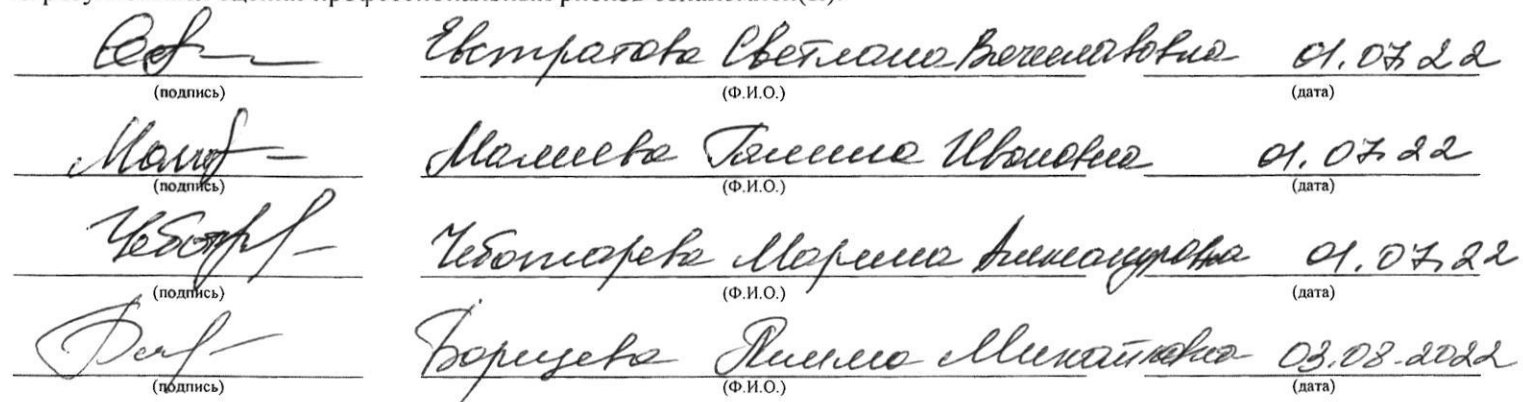 Евстратова Светлана Вячеславовна 01.07.22
(подпись) (Ф.И.О.) (дата)
Галина Ивановна 01.07.22
(подпись) (Ф.И.О.) (дата)
Чеботарева Марина Александровна 01.07.22
(подпись) (Ф.И.О.) (дата)
Борщева Михайловна 03.08.2022
(подпись) (Ф.И.О.) (дата)